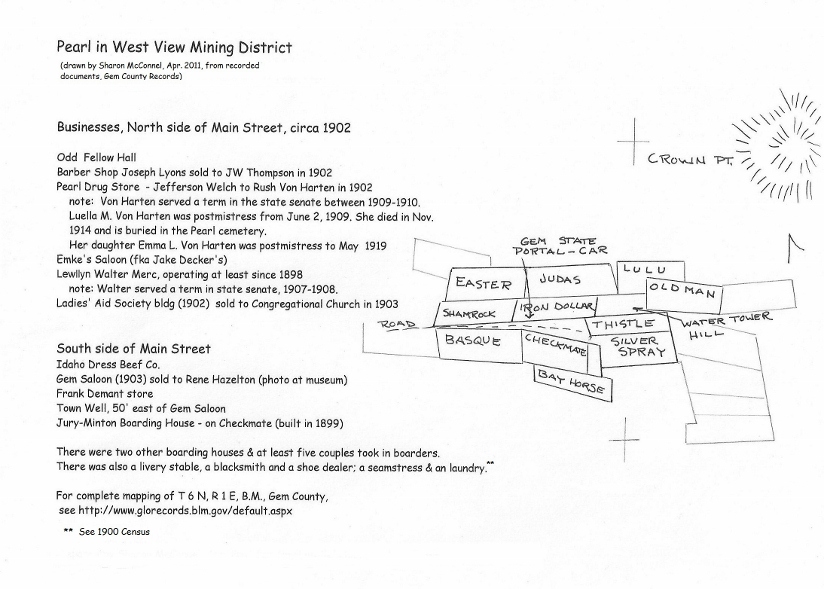 Pearl in West View Mining District
(drawn by Sharon McConnel, Apr. 2011, from recorded
documents, Gem County Records)
Businesses, North side of Main Street, circa 1902
Odd Fellow Hall
Barber Shop Joseph Lyons sold to JW Thompson in 1902
Pearl Drug Store - Jefferson Welch to Rush Von Harten in 1902
note: Von Harten served a term in the state senate between 1909-1910.
Luella M. Von Harten was postmistress from June 2, 1909. She died in Nov.
1914 and is buried in the Pearl cemetery.
Her daughter Emma L. Von Harten was postmistress to May 1919
Emke's Saloon (fka Jake Decker's)
Lewllyn Walter Merc, operating at least since 1898
note: Walter served a term in state senate, 1907-1908.
Ladies' Aid Society bldg (1902) sold to Congregational Church in 1903
South side of Main Street
Idaho Dress Beef Co.
Gem Saloon (1903) sold to Rene Hazelton (photo at museum)
Frank Demant store
Town Well, 50' east of Gem Saloon
Jury-Minton Boarding House - on Checkmate (built in 1899)
There were two other boarding houses & at least five couples took in boarders.
There was also a livery stable, a blacksmith and a shoe dealer; a seamstress & an laundry.**
For complete mapping of T 6 N, R 1 E, B.M., Gem County,
see http://www.glorecords.blm.gov/default.aspx
** See 1900 Census
CROWN PT.
GEM STATE
PORTAL-CAR
EASTER
JUDAS
LULU
OLD MAN
SHAMROCK
IRON DOLLAR
ROAD
THISTLE
WATER TOWER
HILL
BASQUE
CHECKMATE
SILVER
SPRAY
BAY HORSE